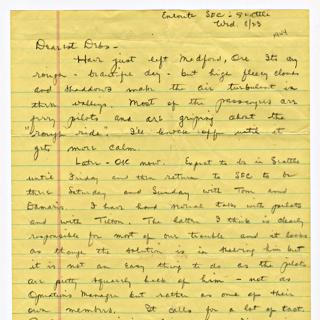 Enroute SFC - Seattle
Wed. 8/23
1944
Dearest Debs -
Have just left Medford, Ore. Its any
rough - beautiful day - but high fleecy clouds
and shadows make the air turbulent in
these valleys. Most of the passengers are
ferry pilots and are griping about the
"rough ride". I'll knock off until it
gets more calm.
Later - OK now. Expect to be in Seattle
until Friday and then return to SFC to be
there Saturday and Sunday with Tom and
Damaris. I have had several talks with pilots
and with Tilton. The latter I think is clearly
responsible for most of our trouble and it looks
as though the solution is in shelving him but
it is not an easy thing to do as the pilots
are pretty squarely back of him - not as
Operations Manager but rather as one of their
own members. It calls for a lot of tact.